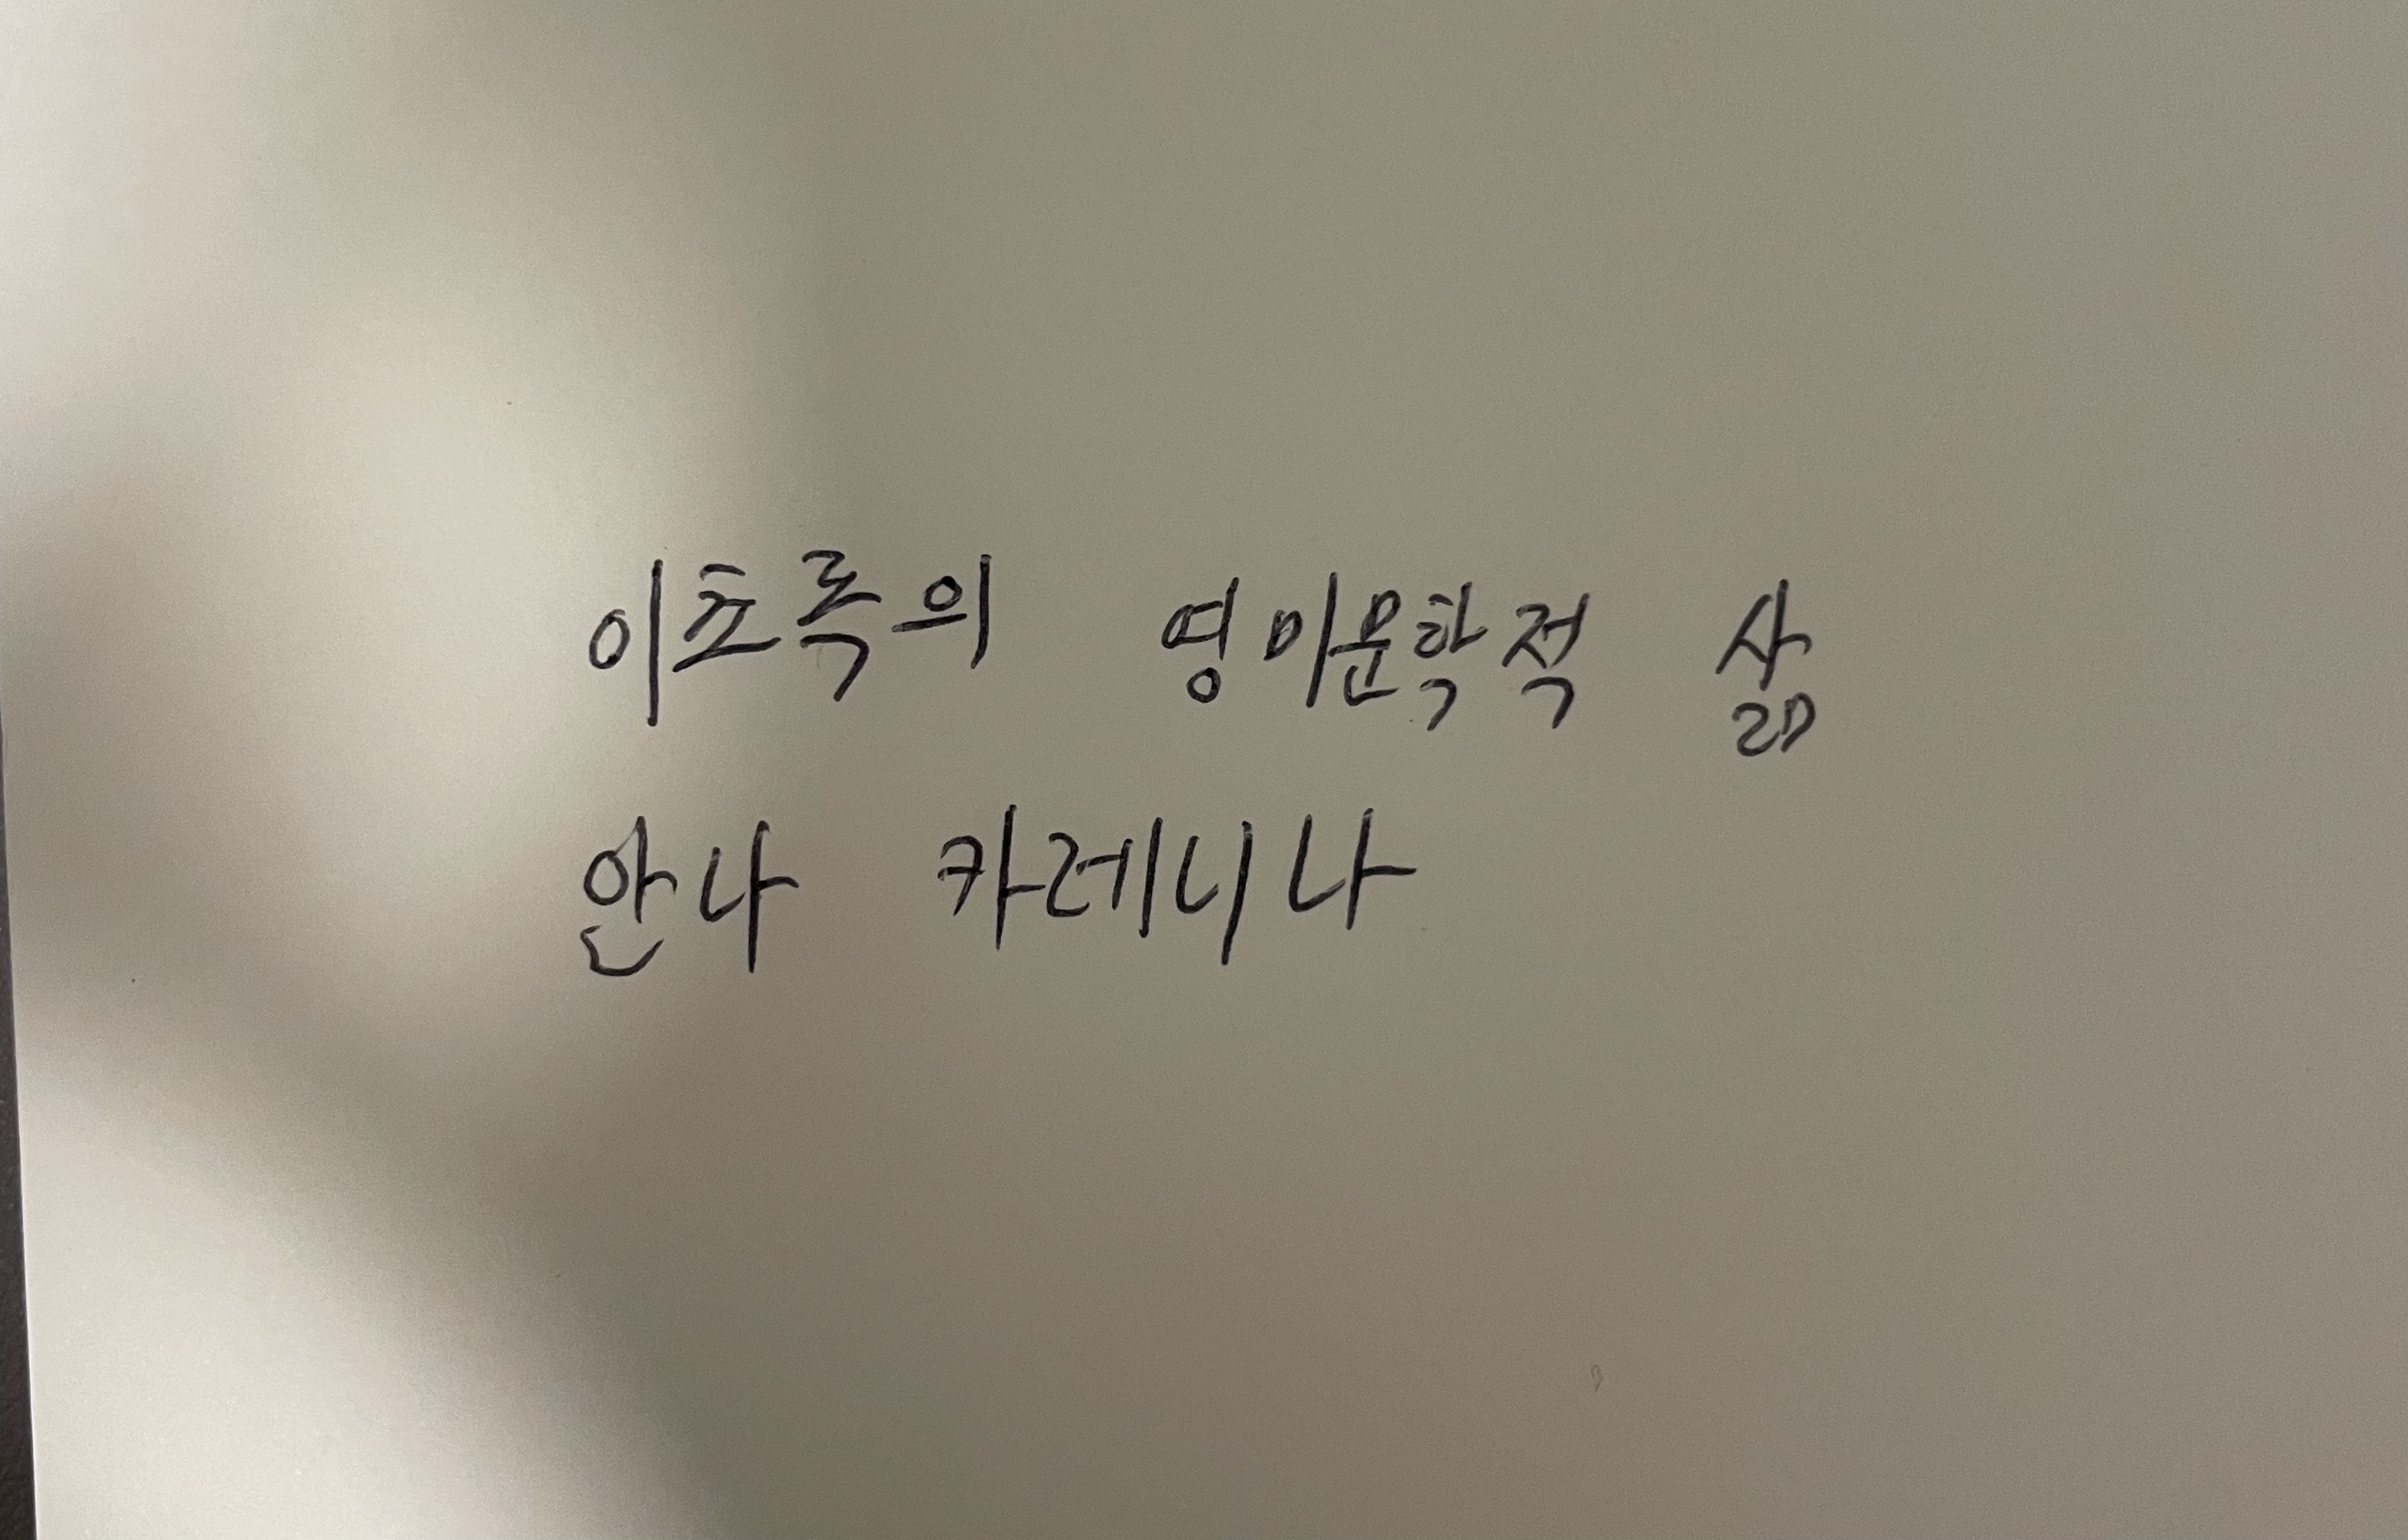 이초록의 영미문학적 삶
안나 카레니나